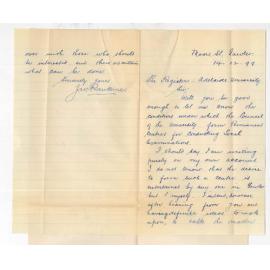 over with those who should
be interested and then ascertain
what can be done.
Sincerely yours
Thoae St. Gawler.
14-12-99
The Registrar - Adelaide University
Sir,
Will you be good
enough to let me know the
conditions under which the Council
of the University form Provincial
Centres for conducting Local
Examinations.
I should say I am writing
purely on my own account
I do not know that the desire
to form such a centre is
entertained by any one in Gawler
but I myself. I want, however
after hearing from you and
having definite ideas to work
upon, to talk the matter